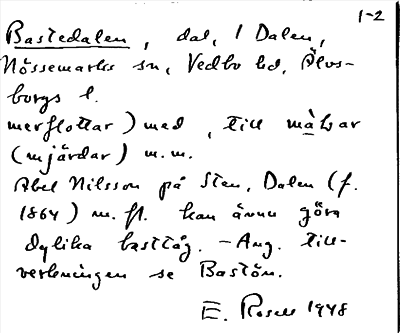 1-2
Bastedalen, dal, 1 Dalen,
Nössemarks sn, Vedbo hd, Älvs-
borgs l.
merflottar) med, till målvar
(mjärdar) m.m.
Abel Nilsson på Sten, Dalen (f.
1864) m. fl. kan ännu göra
dylika basttåg. - Ang. till-
verkningen se Bastön.
E. Rosell 1948